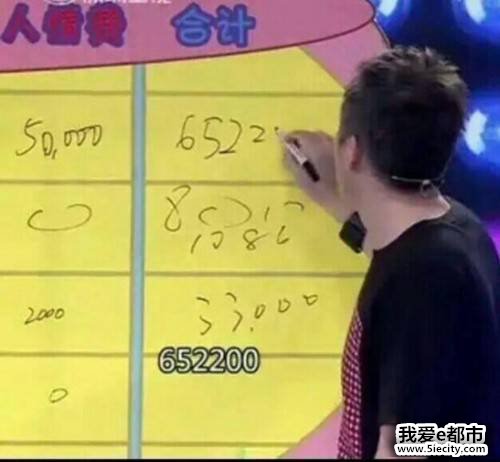 人情费 合计
50,000 6522
0
2000 33,000
652200
0
我爱e都市
www.5iecity.com